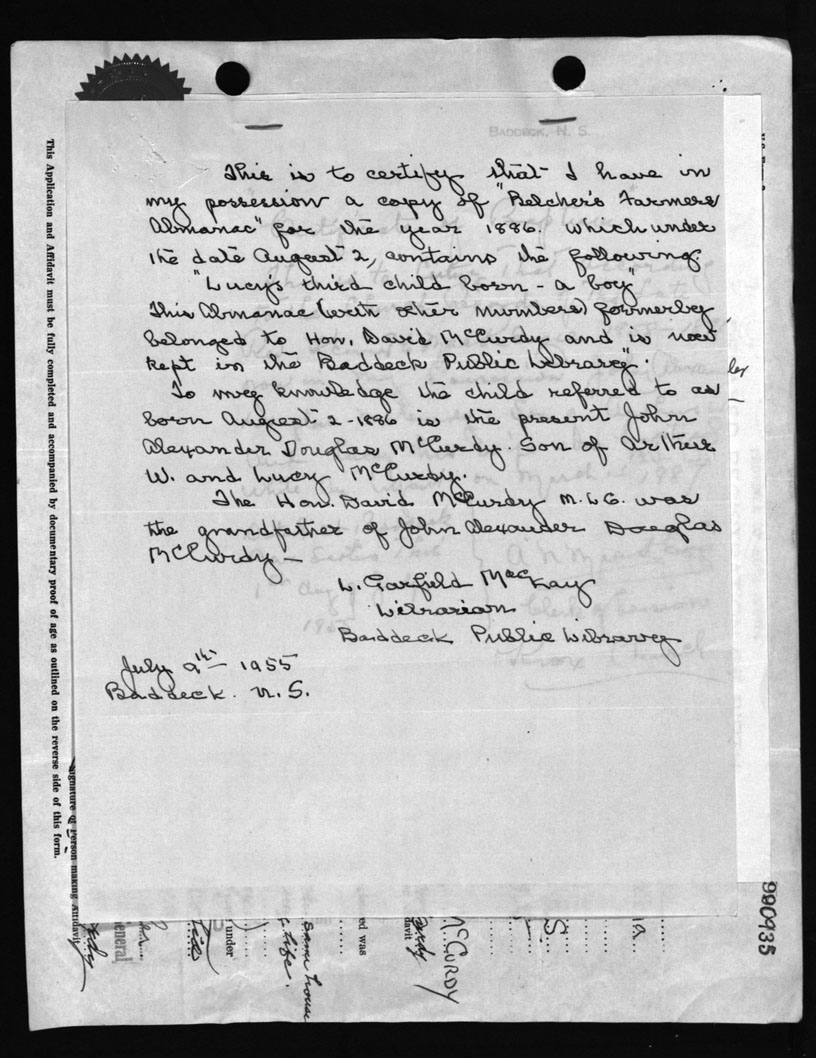 BADDECK, N. S.
This is to certify that I have in
my possession a copy of "Belcher's Farmers
Almanac" for the year 1886. which under
the date August 2, contains the following.
"Lucy's third child born - a boy"
This Almanac (with other numbers) formerly
belonged to Hon. David McCurdy and is now
kept in the Baddeck Public Library".
To my knowledge the child referred to as
born August 2 - 1886 is the present John
Alexander Douglas McCurdy. Son of Arthur
W. and Lucy McCurdy.
The Hon. David McCurdy M.L.C. was
the grandfather of John Alexander Douglas
McCurdy —
L. Garfield MacKay
Librarian
Baddeck Public Library
July 9th - 1955
Baddeck. N.S.
This Application and Affidavit must be fully completed and accompanied by documentary proof of age as outlined on the reverse side of this form.
Signature of Person making Affidavit
eneral
under
life.
same house
ed was
davit
McCURDY
990935